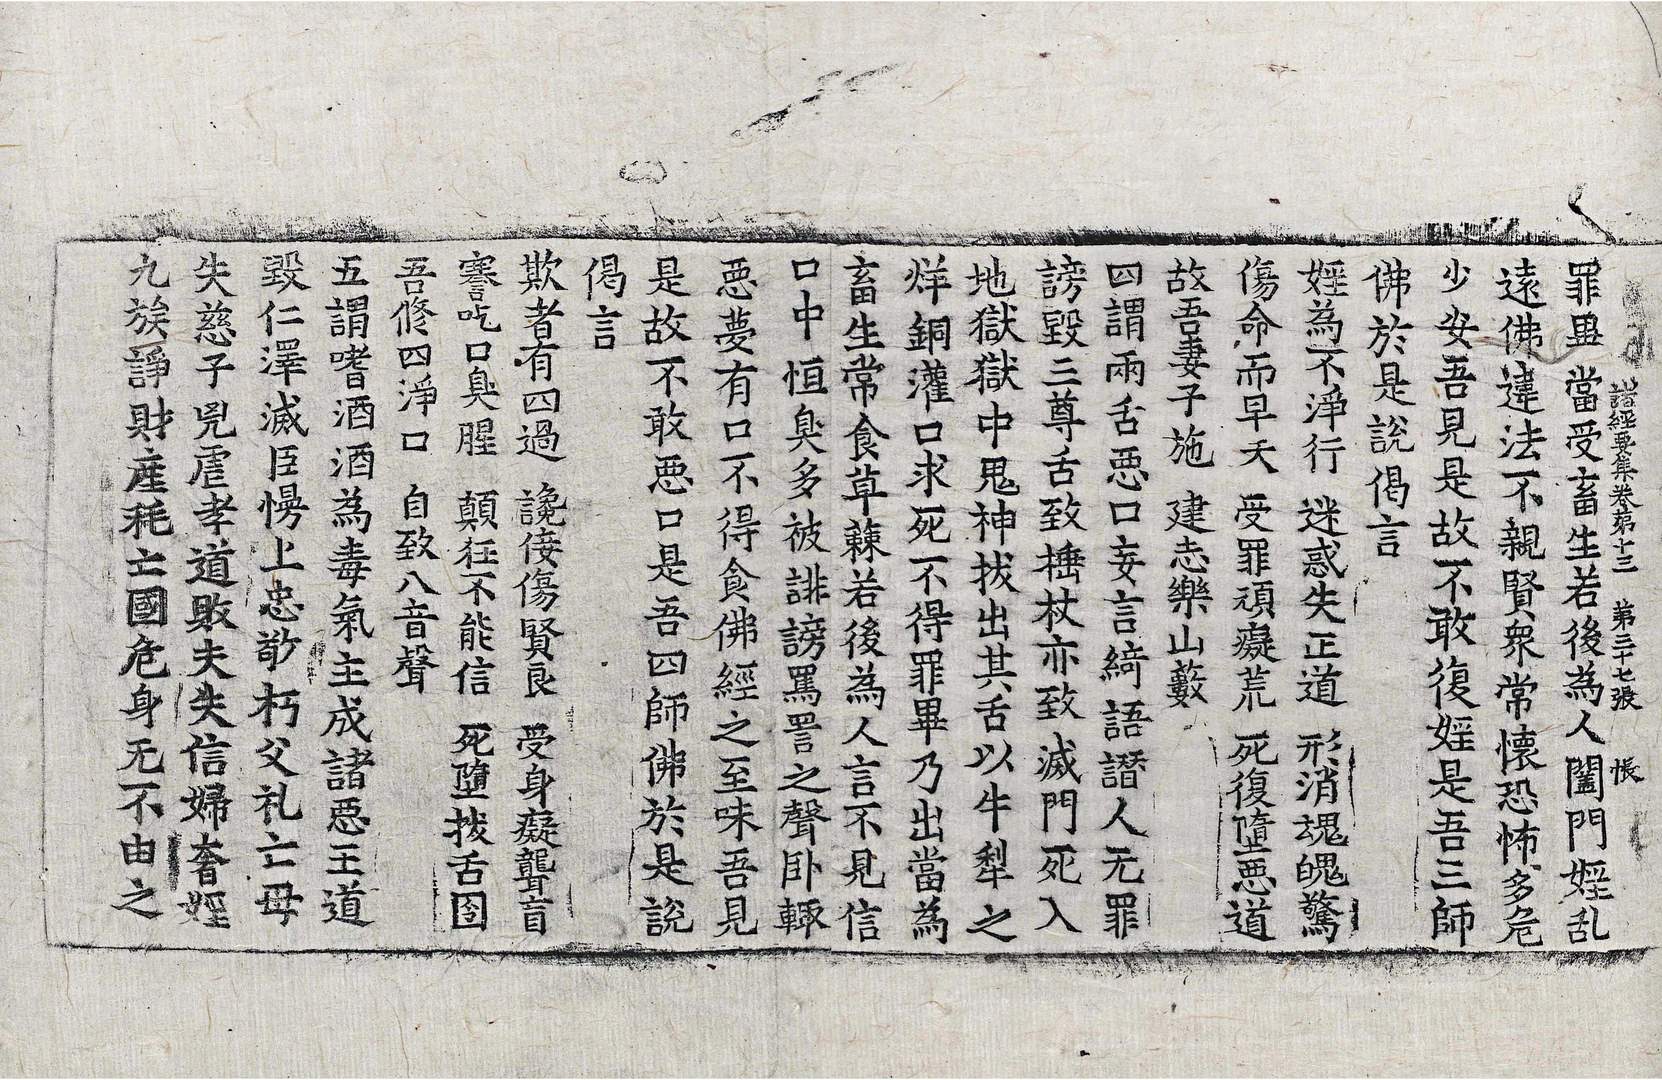 罪畢當受畜生若後為人閨門婬乱
諸經要集卷第十三　第三十七張　帳
遠佛違法不親賢衆常懷恐怖多危
少安吾見是故不敢復婬是吾三師
佛於是說偈言
婬為不淨行　迷惑失正道　形消魂魄驚
傷命而早夭　受罪頑癡荒　死復墮悪道
故吾妻子施　建志樂山藪
四謂兩舌悪口妄言綺語譖人无罪
謗毀三尊舌致捶杖亦致滅門死入
地獄獄中鬼神拔出其舌以牛犁之
烊銅灌口求死不得罪畢乃出當為
畜生常食草蕀若後為人言不見信
口中恒臭多被誹謗罵詈之聲卧輙
悪夢有口不得食佛經之至味吾見
是故不敢悪口是吾四師佛於是說
偈言
欺者有四過　讒佞傷賢良　受身癡聾盲
謇吃口臭腥　顛狂不能信　死墮拔舌囹
吾修四淨口　自致八音聲
五謂嗜酒酒為毒氣主成諸悪王道
毀仁澤滅臣慢上忠敬朽父礼亡母
失慈子兇虐孝道敗夫失信婦奢婬
九族諍財産秏亡國危身无不由之